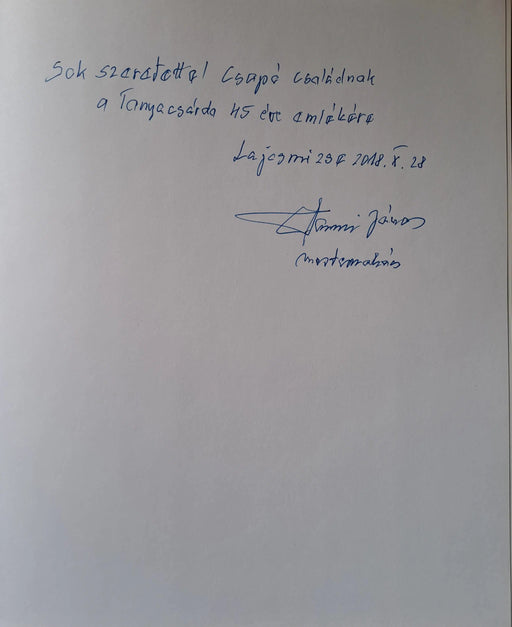 Sok szeretettel Csapó családnak
a Tanyacsárda 45 éve emlékére
Lajosmizse 2018. X. 28
János
mesterszakács